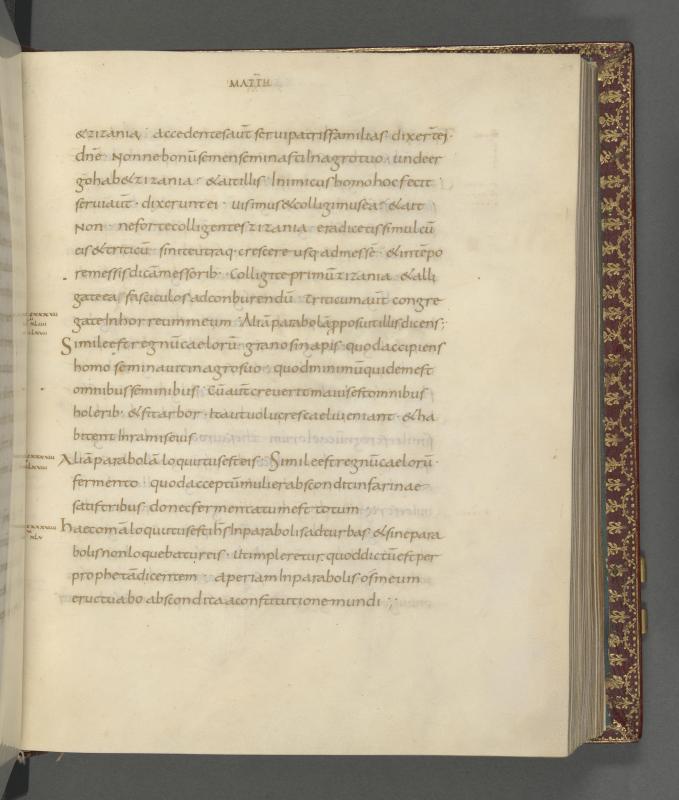 MATTH
&zizania· accedentes aut̄ serui patrisfamilias dixer̄t ei·
dn̄e Nonne bonū semen seminasti In agro tuo· unde er
go hab& zizania· & ait illis Inimicus homo hoc fecit
serui aut̄· dixerunt ei· uis imus & colligimus ea· & ait
Non· ne forte colligentes zizania eradicetis simul cū
eis & triticū sinite utraq· crescere usq ad messē· & in tēpo
re messis dicā messorib· Colligite primū zizania & alli
gate ea fasciculos ad conburendū Triticum aut̄ congre
gate In horreum meum· Aliā parabolā pposuit illis dicens·
Simile est regnū caelorū grano sinapis quod accipiens
homo seminauit in agro suo· quod minimū quidem est
omnibus seminibus· Cū aut̄ creuerit maius est omnibus
holerib· & fit arbor· Ita ut uolucres caeli ueniant· & ha
bitent In ramis eius·
Aliā parabolā loquutus est eis· Simile est regnū caelorū·
fermento· quod acceptū mulier abscondit in farinae
satis tribus donec fermentatum est totum
haec omā loquutus est ihs̄ In parabolis ad turbas & sine para
bolis non loquebatur eis· Ut impleretur quod dictū est per
proph&ā dicentem· aperiam In parabolis os̄ meum
eructuabo abscondita a constitutione mundi·